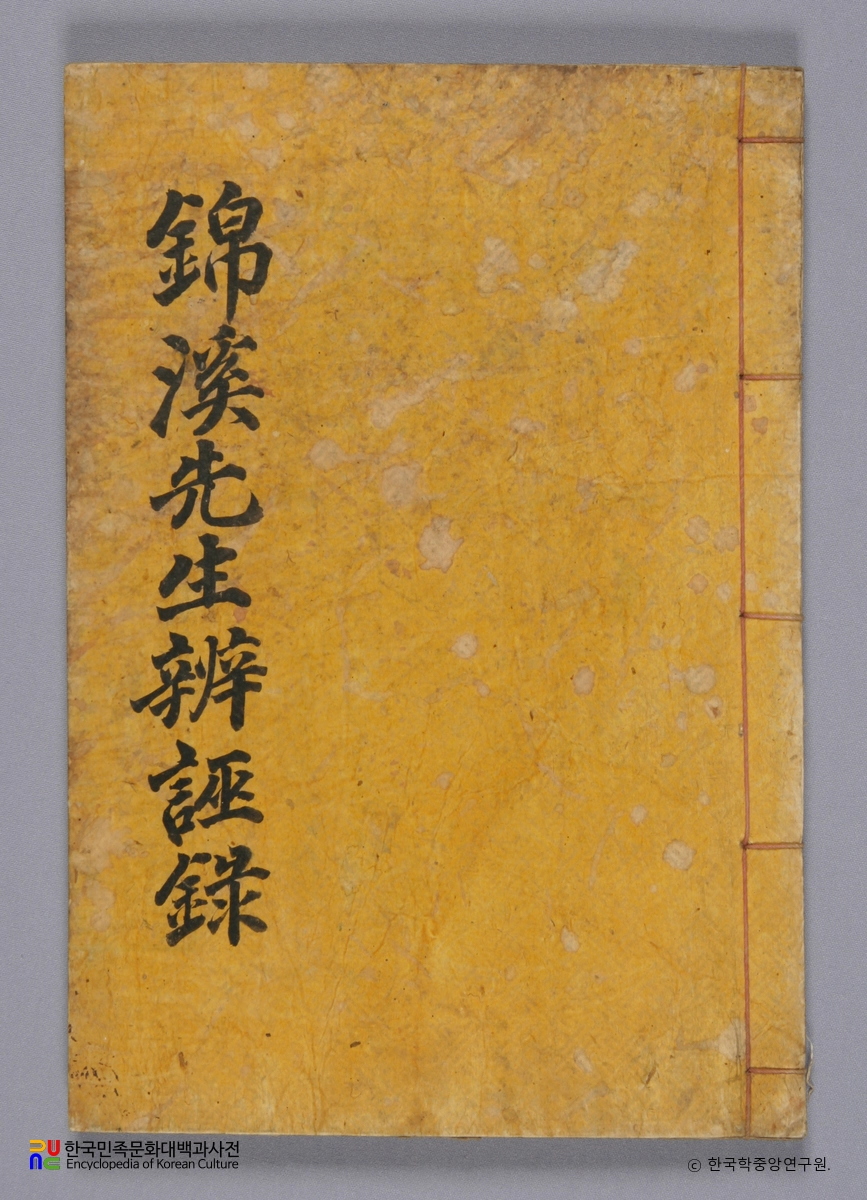 錦溪先生辨誣錄
한국민족문화대백과사전
Encyclopedia of Korean Culture
ⓒ 한국학중앙연구원.